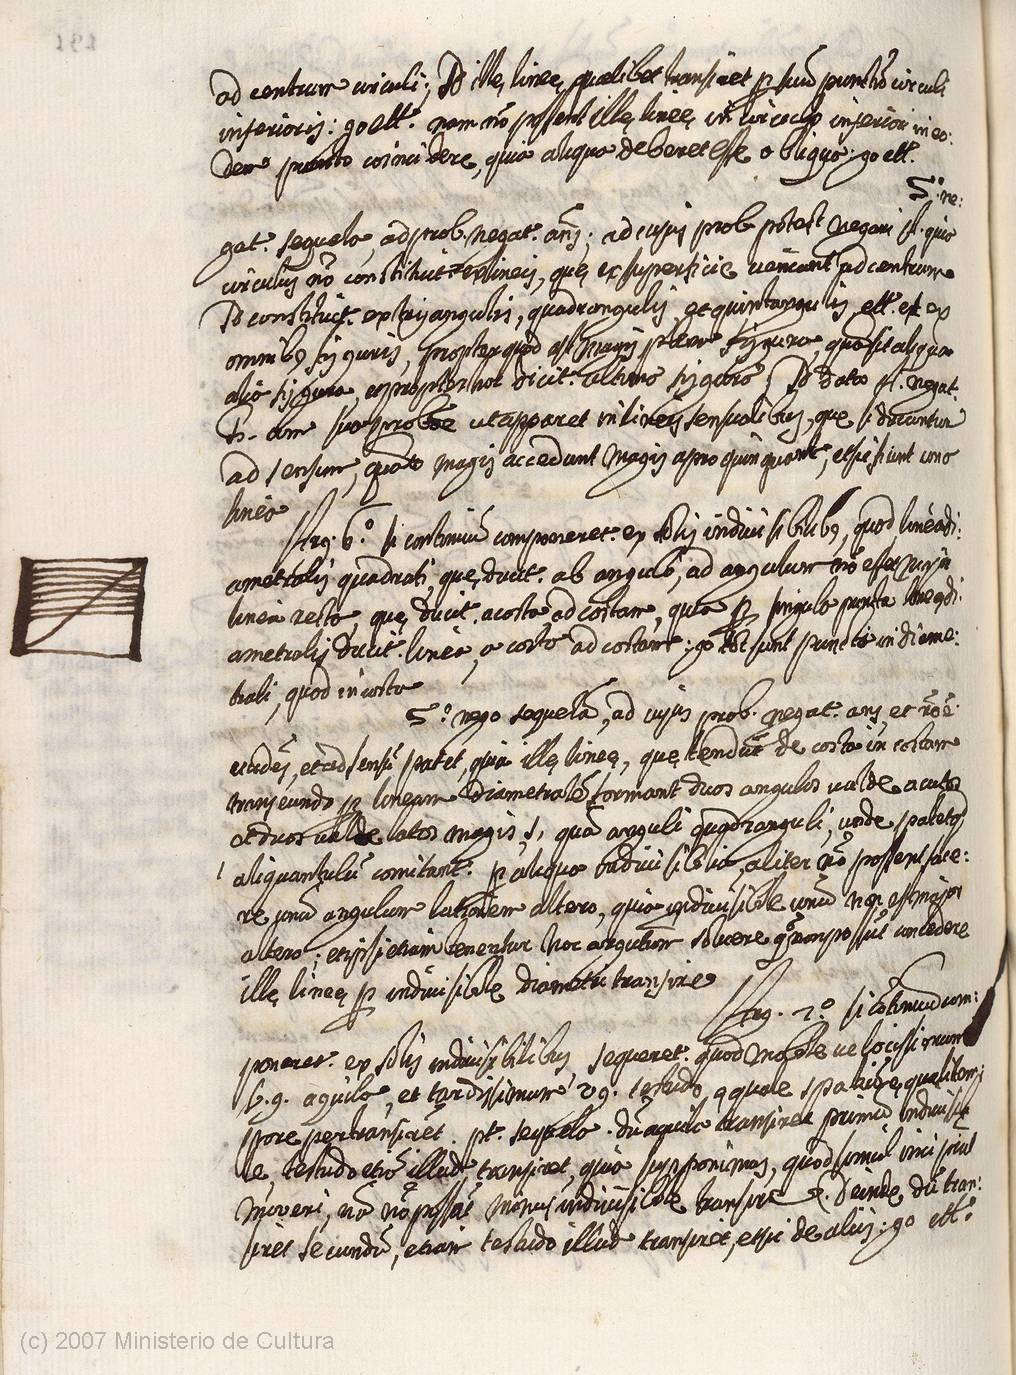 ad centrum circuli; Sed illę lineę quælibet transiret p suũ punctũ circuli
inferioris: go ett.ª nam nõ possent illę lineę in circulo inferiori in eo:
dem puncto coincidere, quia aliqua deberet esse obliqua: go ett.
S.º ne:
gat.ʳ sequela, ad prob. negat.ʳ añs; ad cujus prob. potest negari quia
circulus nõ constituit.ʳ ex lineis, quę ex superficie veniunt ad centrum
Sed constituit.ʳ ex triangulis, quadrangulis, et quintangulis, ett.ª et ex
omnibꝯ figuris, propter quod est magis plena figura, quã sit aliqua
alia figura, et propter hoc dicit.ʳ ultima figura; Sed dato negat.ʳ
ut apparet in lineis sensualibus, que si ducantur
ad sensum, quãto magis accedunt magis apropinquant, et sic fiunt una
linea
Arg. 6.º si continuũ componeret.ʳ ex solis indivisibilibꝯ, quod linea di:
ametralis quadrati, que ducit.ʳ ab angulo, ad angulum nõ esset major
linea recta, que ducit.ʳ a costa ad costam, quia p singula puncta lineę di:
ametralis ducit.ʳ linea, a costa ad costam: go tot sunt puncta in diame:
trali, quod in costa
S.º nego sequelã, ad cujus prob. negat.ʳ añs, et rõ ẽ
evidẽs, et ad sensũ patet, quia illę lineę, quę tendũt de costa in costam
transeundo p lineam diametralẽ formant duos angulos valde acutos
et duos valde latos magis, quã anguli quadranguli, unde spatiũ
aliquantulũ comitant.ʳ p aliqua indivisibilia, aliter nõ possent face:
re unũ angulum latiorem altero, quia indivisibile unũ non est major
altero; et ipsi etiam tenentur hoc argutum solvere non possũt concedere
illę lineę p indivisibile diametri transire
Arg. 7.º si cõtinuũ com:
poneret.ʳ ex solis indivisibilibus, sequeret.ʳ quod mobile velocissimum
v.g. aquila, et tardissimum v.g. testudo, equale spatiũ equali tem:
pore pertransiret. pt.ʳ sequela. dũ aquila transiret primũ indivisibi
le, testudo etiã illud transiret, quia supponimus, quod simul incipiũt
moveri, nã nõ possũt minus indivisibile transire. Deinde, dũ tran:
siret secundũ, etiam testudo illud transiret, et sic de aliis: go ett.ª
(c) 2007 Ministerio de Cultura